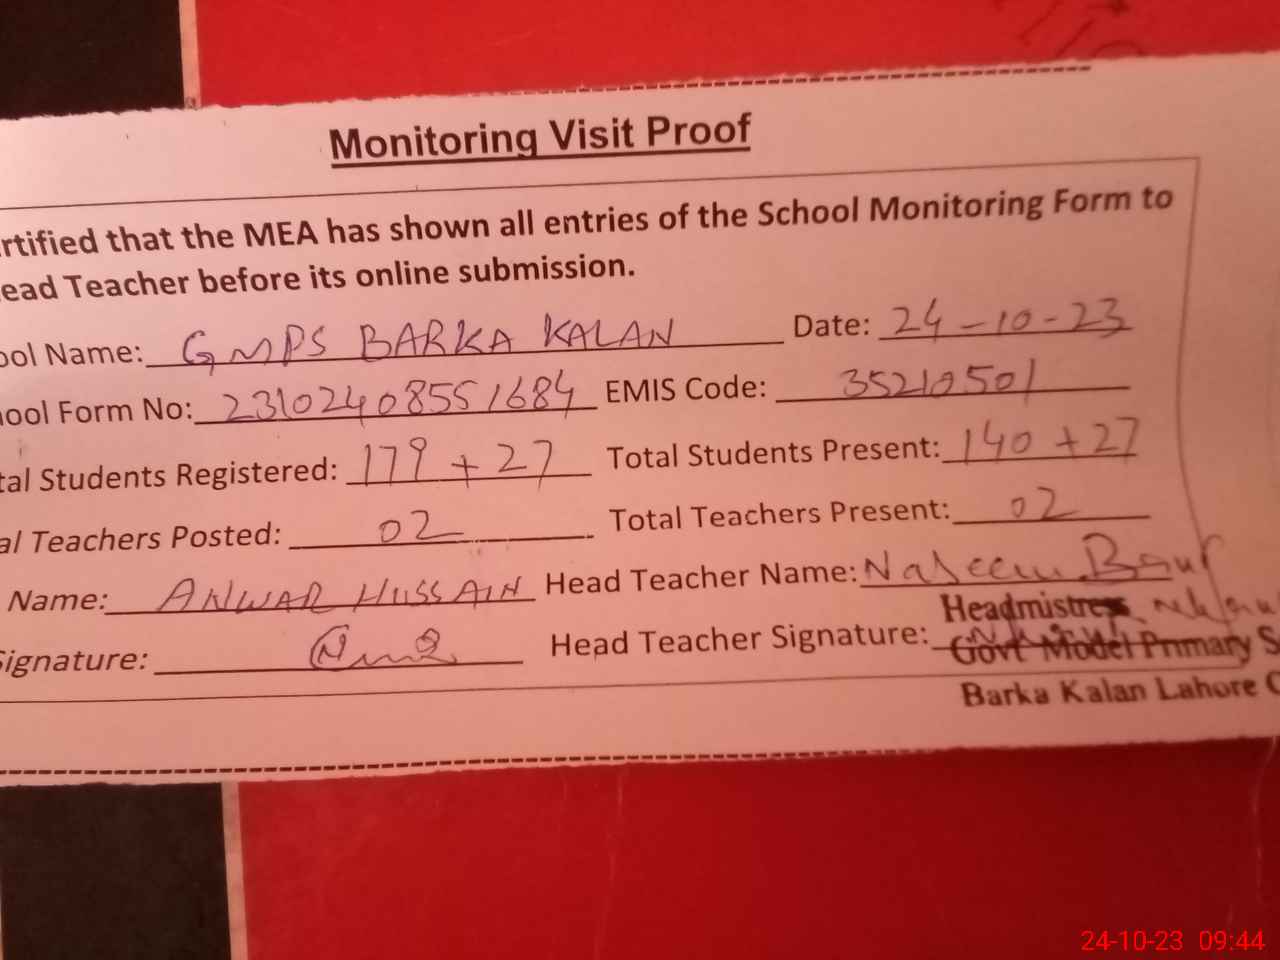 Monitoring Visit Proof
rtified that the MEA has shown all entries of the School Monitoring Form to
ead Teacher before its online submission.
ool Name: GMPS BARKA KALAN Date: 24-10-23
ool Form No: 23102408551684 EMIS Code: 35210501
tal Students Registered: 179 + 27 Total Students Present: 140 + 27
al Teachers Posted: 02 Total Teachers Present: 02
Name: ANWAR HUSSAIN Head Teacher Name: Naseem
Headmistress
ignature: Head Teacher Signature:
Govt Model Primary S
Barka Kalan Lahore C
24-10-23 09:44